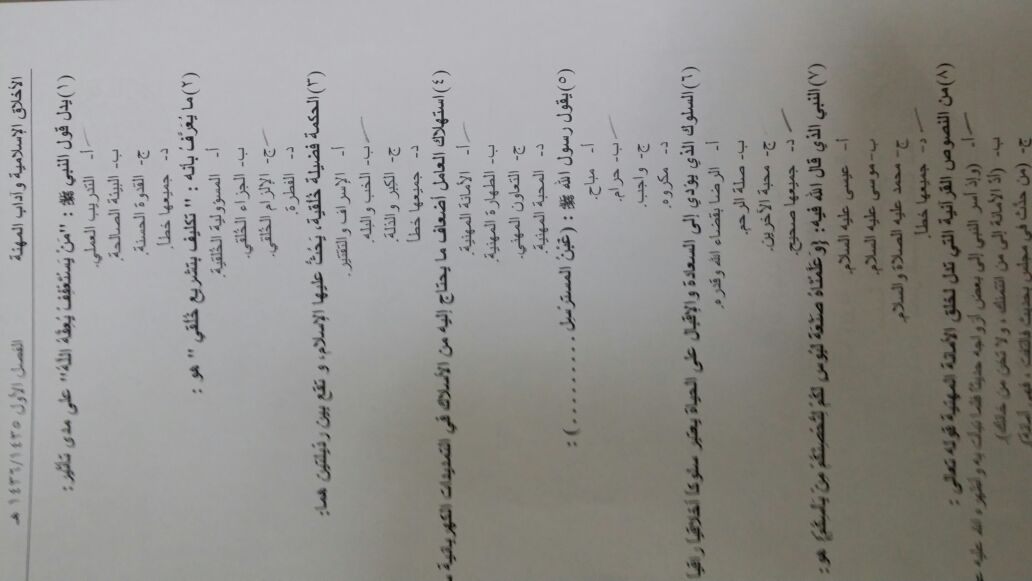 الأخلاق الإسلامية وآداب المهنة الفصل الأول ١٤٣٦/١٤٣٥ هـ
(١) يدل قول النبي ﷺ : "مَنْ يَسْتَعْفِفْ يُعِفَّهُ اللَّهُ" على مدى تأثير :
أ- التدريب العملي.
ب- البيئة الصالحة
ج- القدوة الحسنة.
د- جميعها خطأ.
(٢) ما يُعَرَّفُ بأنه : " تكليف بتشريع خُلقي " هو :
أ- المسؤولية الخُلقية.
ب- الجزاء الخُلقي.
ج- الإلزام الخُلقي.
د- الفطرة.
(٣) الحكمة فضيلة خُلقية، يَحُثُّ عليها الإسلام، و تقع بين رذيلتين هما:
أ- الإسراف والتقتير.
ب- الخب والبله.
ج- الكبر والذلة.
د- جميعها خطأ
(٤) استهلاك العامل أضعاف ما يحتاج إليه من الأسلاك في التمديدات الكهربائية
أ- الأمانة المهنية.
ب- الطهارة المهنية.
ج- التعاون المهني.
د- المحبة المهنية.
(٥) يقول رسول الله ﷺ : (غَبْنُ المسترسل ...........) :
أ- مباح.
ب- حرام.
ج- واجب.
د- مكروه.
(٦) السلوك الذي يؤدي إلى السعادة والإقبال على الحياة يعتبر سلوكا أخلاقيا راقيا
أ- الرضا بقضاء الله وقدره.
ب- صلة الرحم.
ج- محبة الآخرين.
د- جميعها صحيح.
(٧) النبي الذي قال الله فيه: {وَعَلَّمْنَاهُ صَنْعَةَ لَبُوسٍ لَكُمْ لِتُحْصِنَكُمْ مِنْ بَأْسِكُمْ} هو:
أ- عيسى عليه السلام.
ب- موسى عليه السلام.
ج- محمد عليه الصلاة والسلام.
د- جميعها خطأ.
(٨) من النصوص القرآنية التي تدل لخلق الأمانة المهنية قوله تعالى :
أ- (وإذ أسر النبي إلى بعض أزواجه حديثا فلما نبأت به وأظهره الله عليه
ب- (أدّ الأمانة إلى من ائتمنك، ولا تخن من خانك).
ج- (من حدّث في مجلس بحديث فالتفت، فهي أمانة)